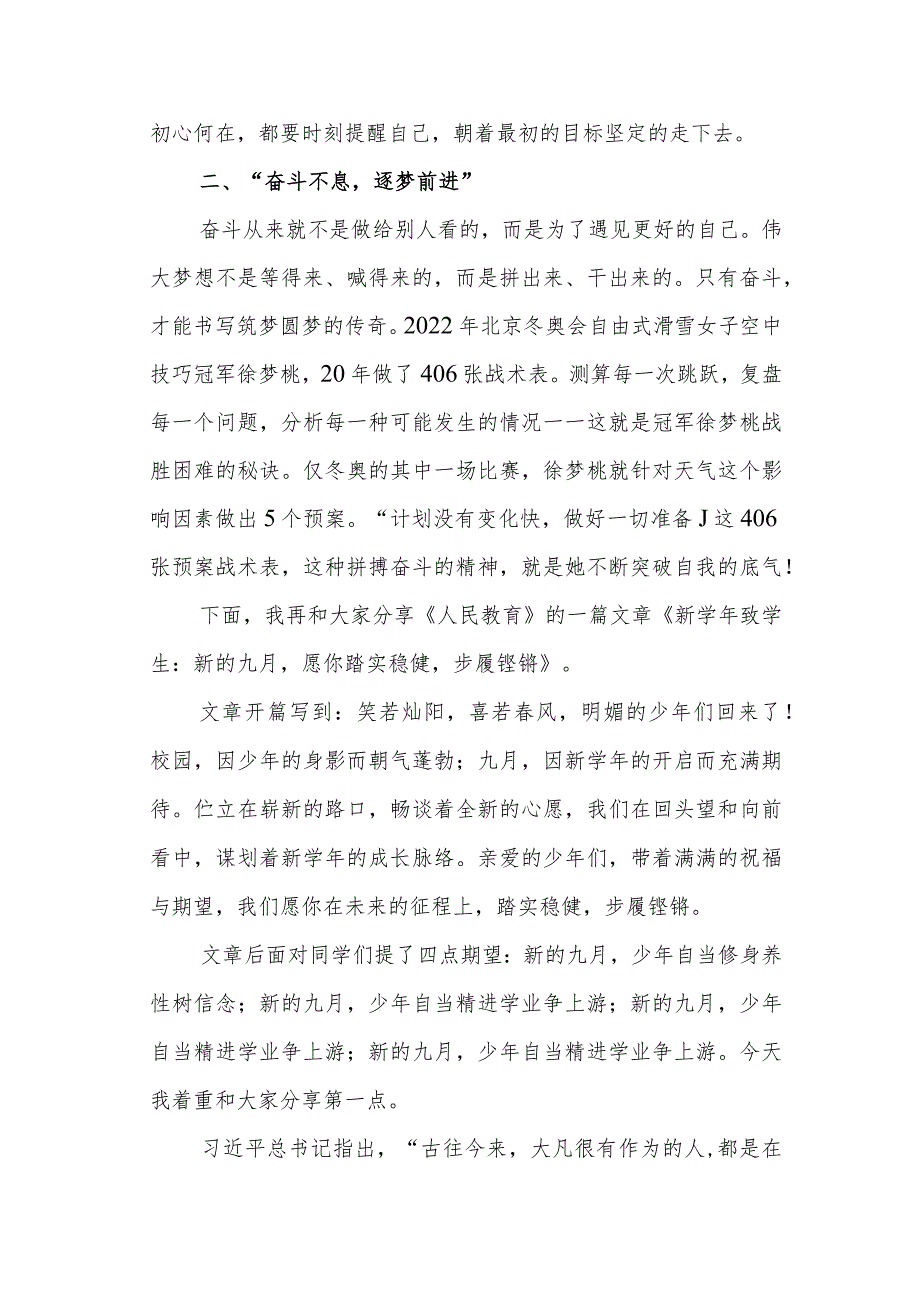 初心何在，都要时刻提醒自己，朝着最初的目标坚定的走下去。
二、“奋斗不息，逐梦前进”
奋斗从来就不是做给别人看的，而是为了遇见更好的自己。伟
大梦想不是等得来、喊得来的，而是拼出来、干出来的。只有奋斗，
才能书写筑梦圆梦的传奇。2022年北京冬奥会自由式滑雪女子空中
技巧冠军徐梦桃，20年做了406张战术表。测算每一次跳跃，复盘
每一个问题，分析每一种可能发生的情况一一这就是冠军徐梦桃战
胜困难的秘诀。仅冬奥的其中一场比赛，徐梦桃就针对天气这个影
响因素做出5个预案。“计划没有变化快，做好一切准备J这406
张预案战术表，这种拼搏奋斗的精神，就是她不断突破自我的底气！
下面，我再和大家分享《人民教育》的一篇文章《新学年致学
生：新的九月，愿你踏实稳健，步履铿锵》。
文章开篇写到：笑若灿阳，喜若春风，明媚的少年们回来了！
校园，因少年的身影而朝气蓬勃；九月，因新学年的开启而充满期
待。伫立在崭新的路口，畅谈着全新的心愿，我们在回头望和向前
看中，谋划着新学年的成长脉络。亲爱的少年们，带着满满的祝福
与期望，我们愿你在未来的征程上，踏实稳健，步履铿锵。
文章后面对同学们提了四点期望：新的九月，少年自当修身养
性树信念；新的九月，少年自当精进学业争上游；新的九月，少年
自当精进学业争上游；新的九月，少年自当精进学业争上游。今天
我着重和大家分享第一点。
习近平总书记指出，“古往今来，大凡很有作为的人,都是在